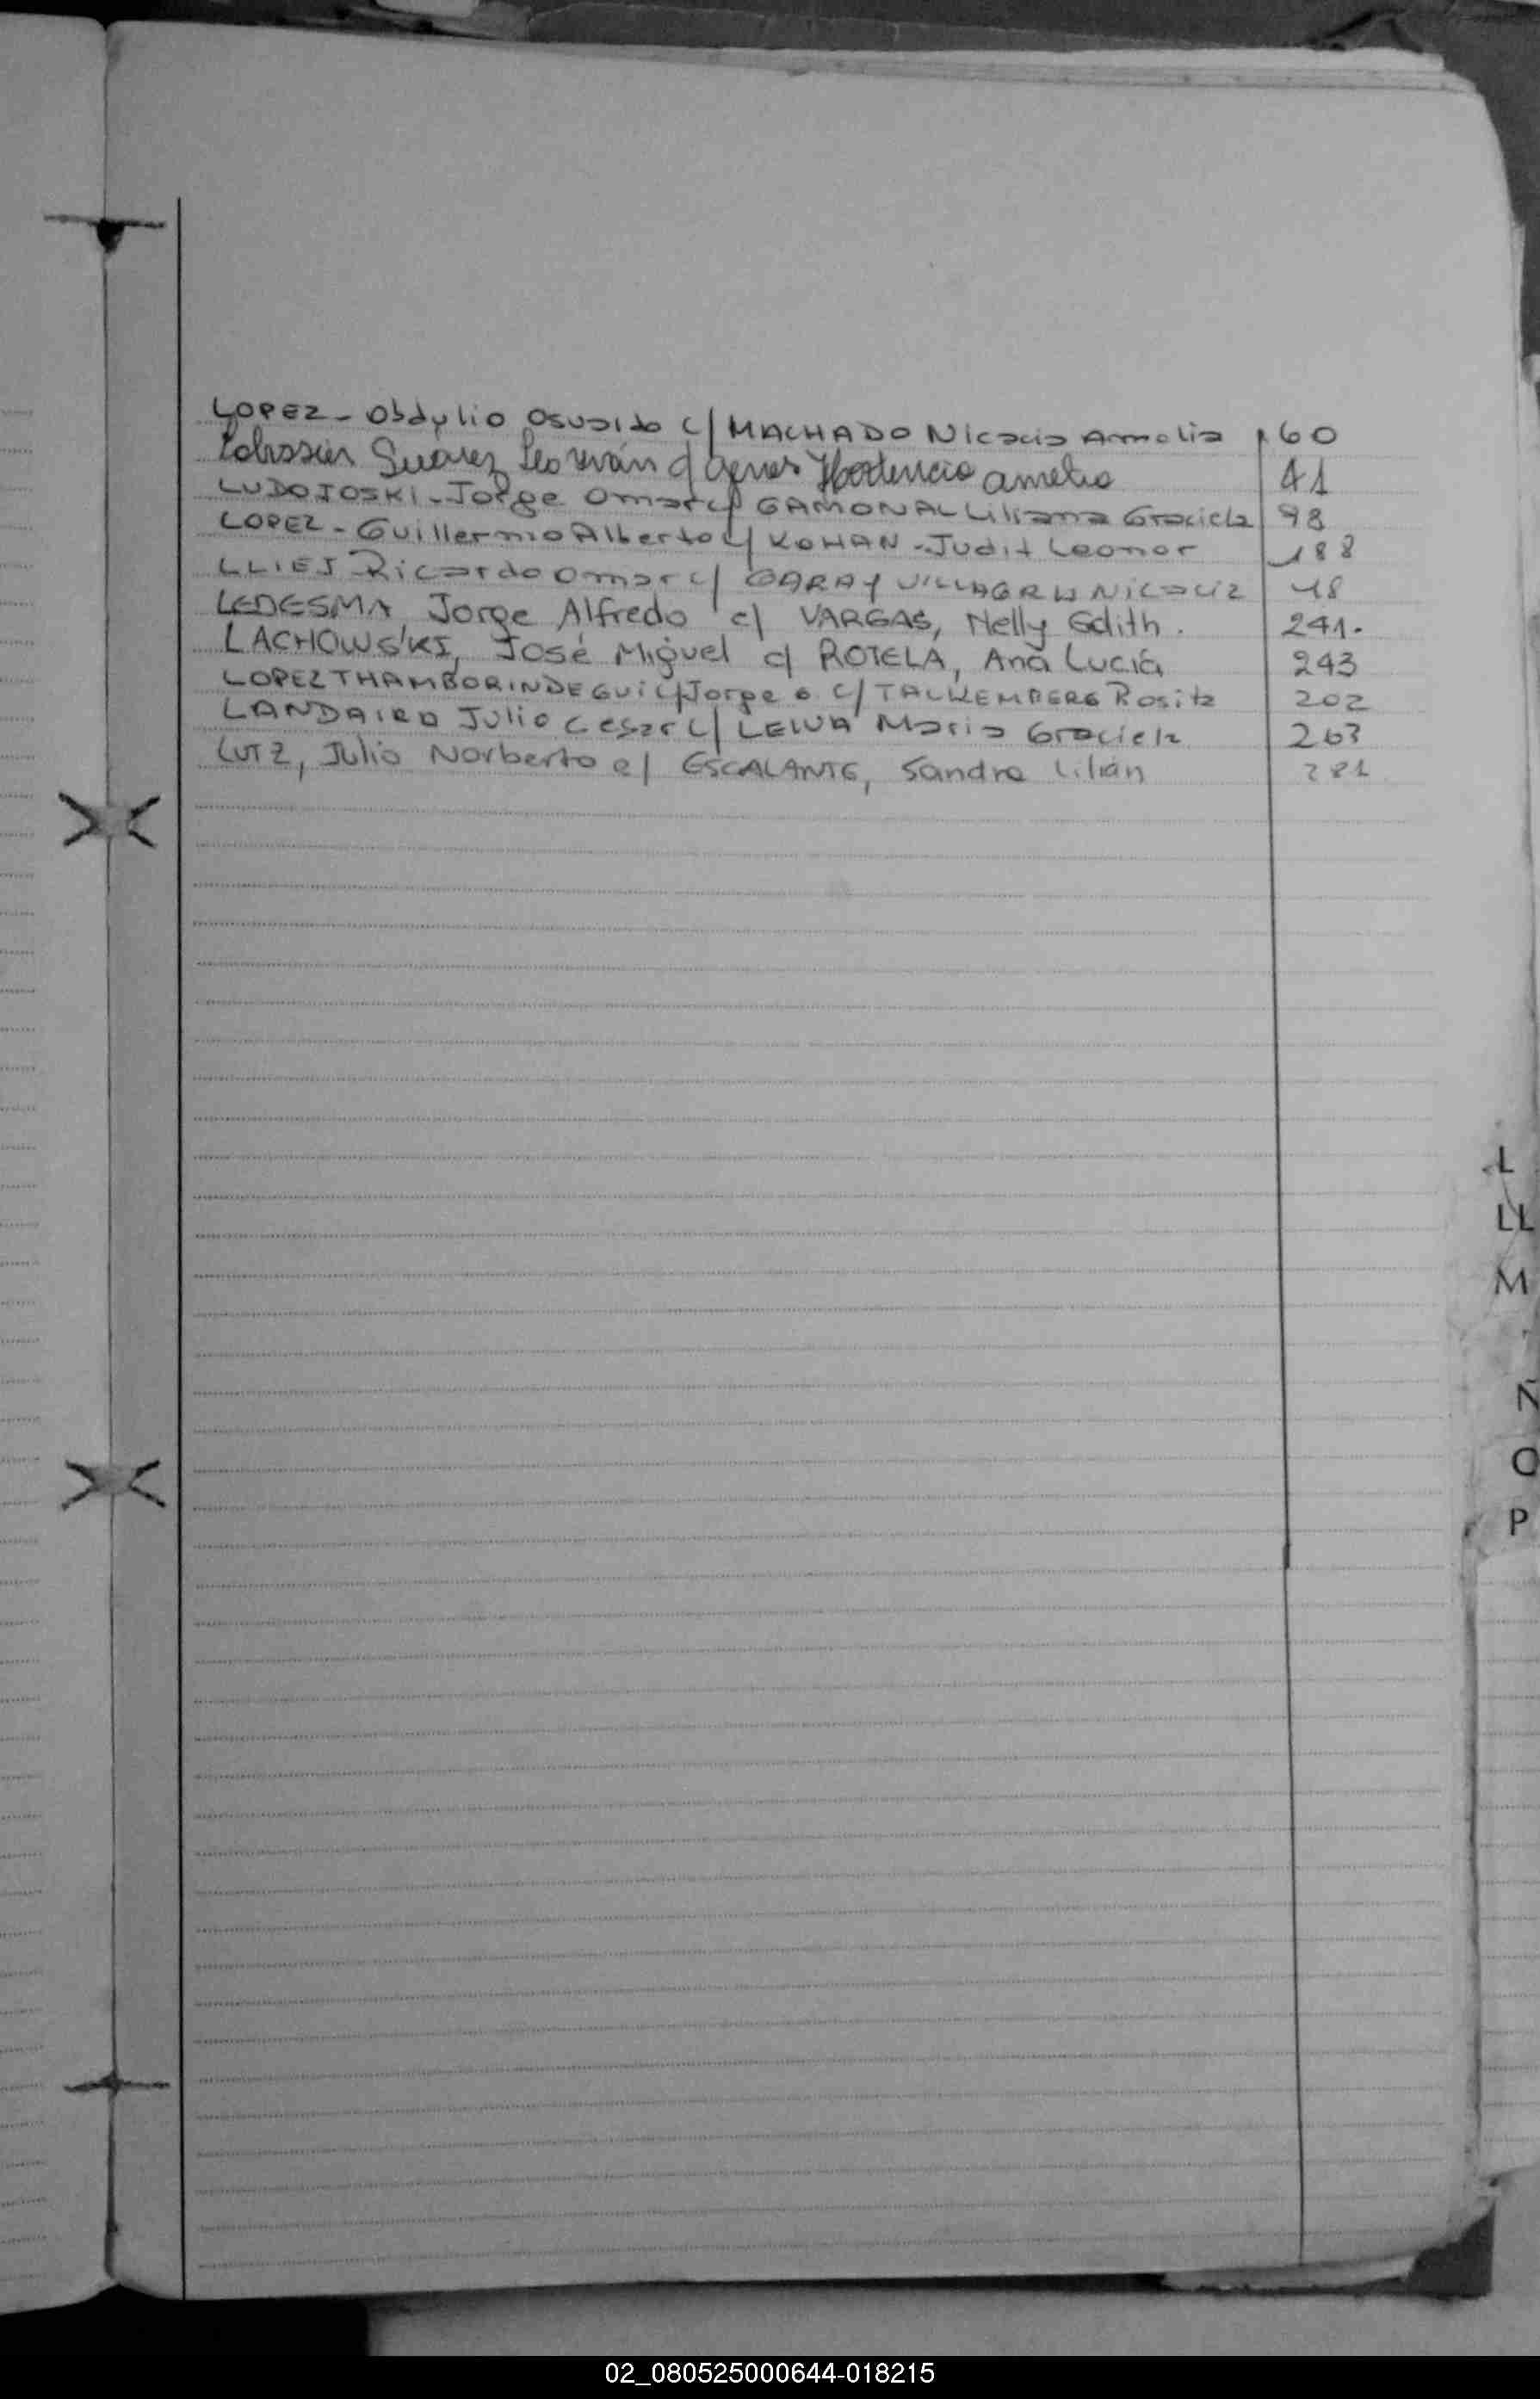 LOPEZ - Obdylio Osvaldo c/ MACHADO Nicacia Amelia 60
Suarez c/ Hortencia Amelia 41
LUDOJOSKI - Jorge Omar c/ GAMONAL Liliana Graciela 98
LOPEZ - Guillermo Alberto c/ KOHAN - Judit Leonor 188
Ricardo Omar c/ GARAY 48
LEDESMA, Jorge Alfredo c/ VARGAS, Nelly Edith. 241.
LACHOWSKI, José Miguel c/ ROTELA, Ana Lucía 243
LOPEZ THAMBORINDEGUI Jorge c/ Rosita 202
Julio Cesar c/ LEIVA Maria Graciela 263
LUTZ, Julio Norberto c/ ESCALANTE, Sandra Lilián 281
L
LL
M
N
O
P
02_080525000644-018215